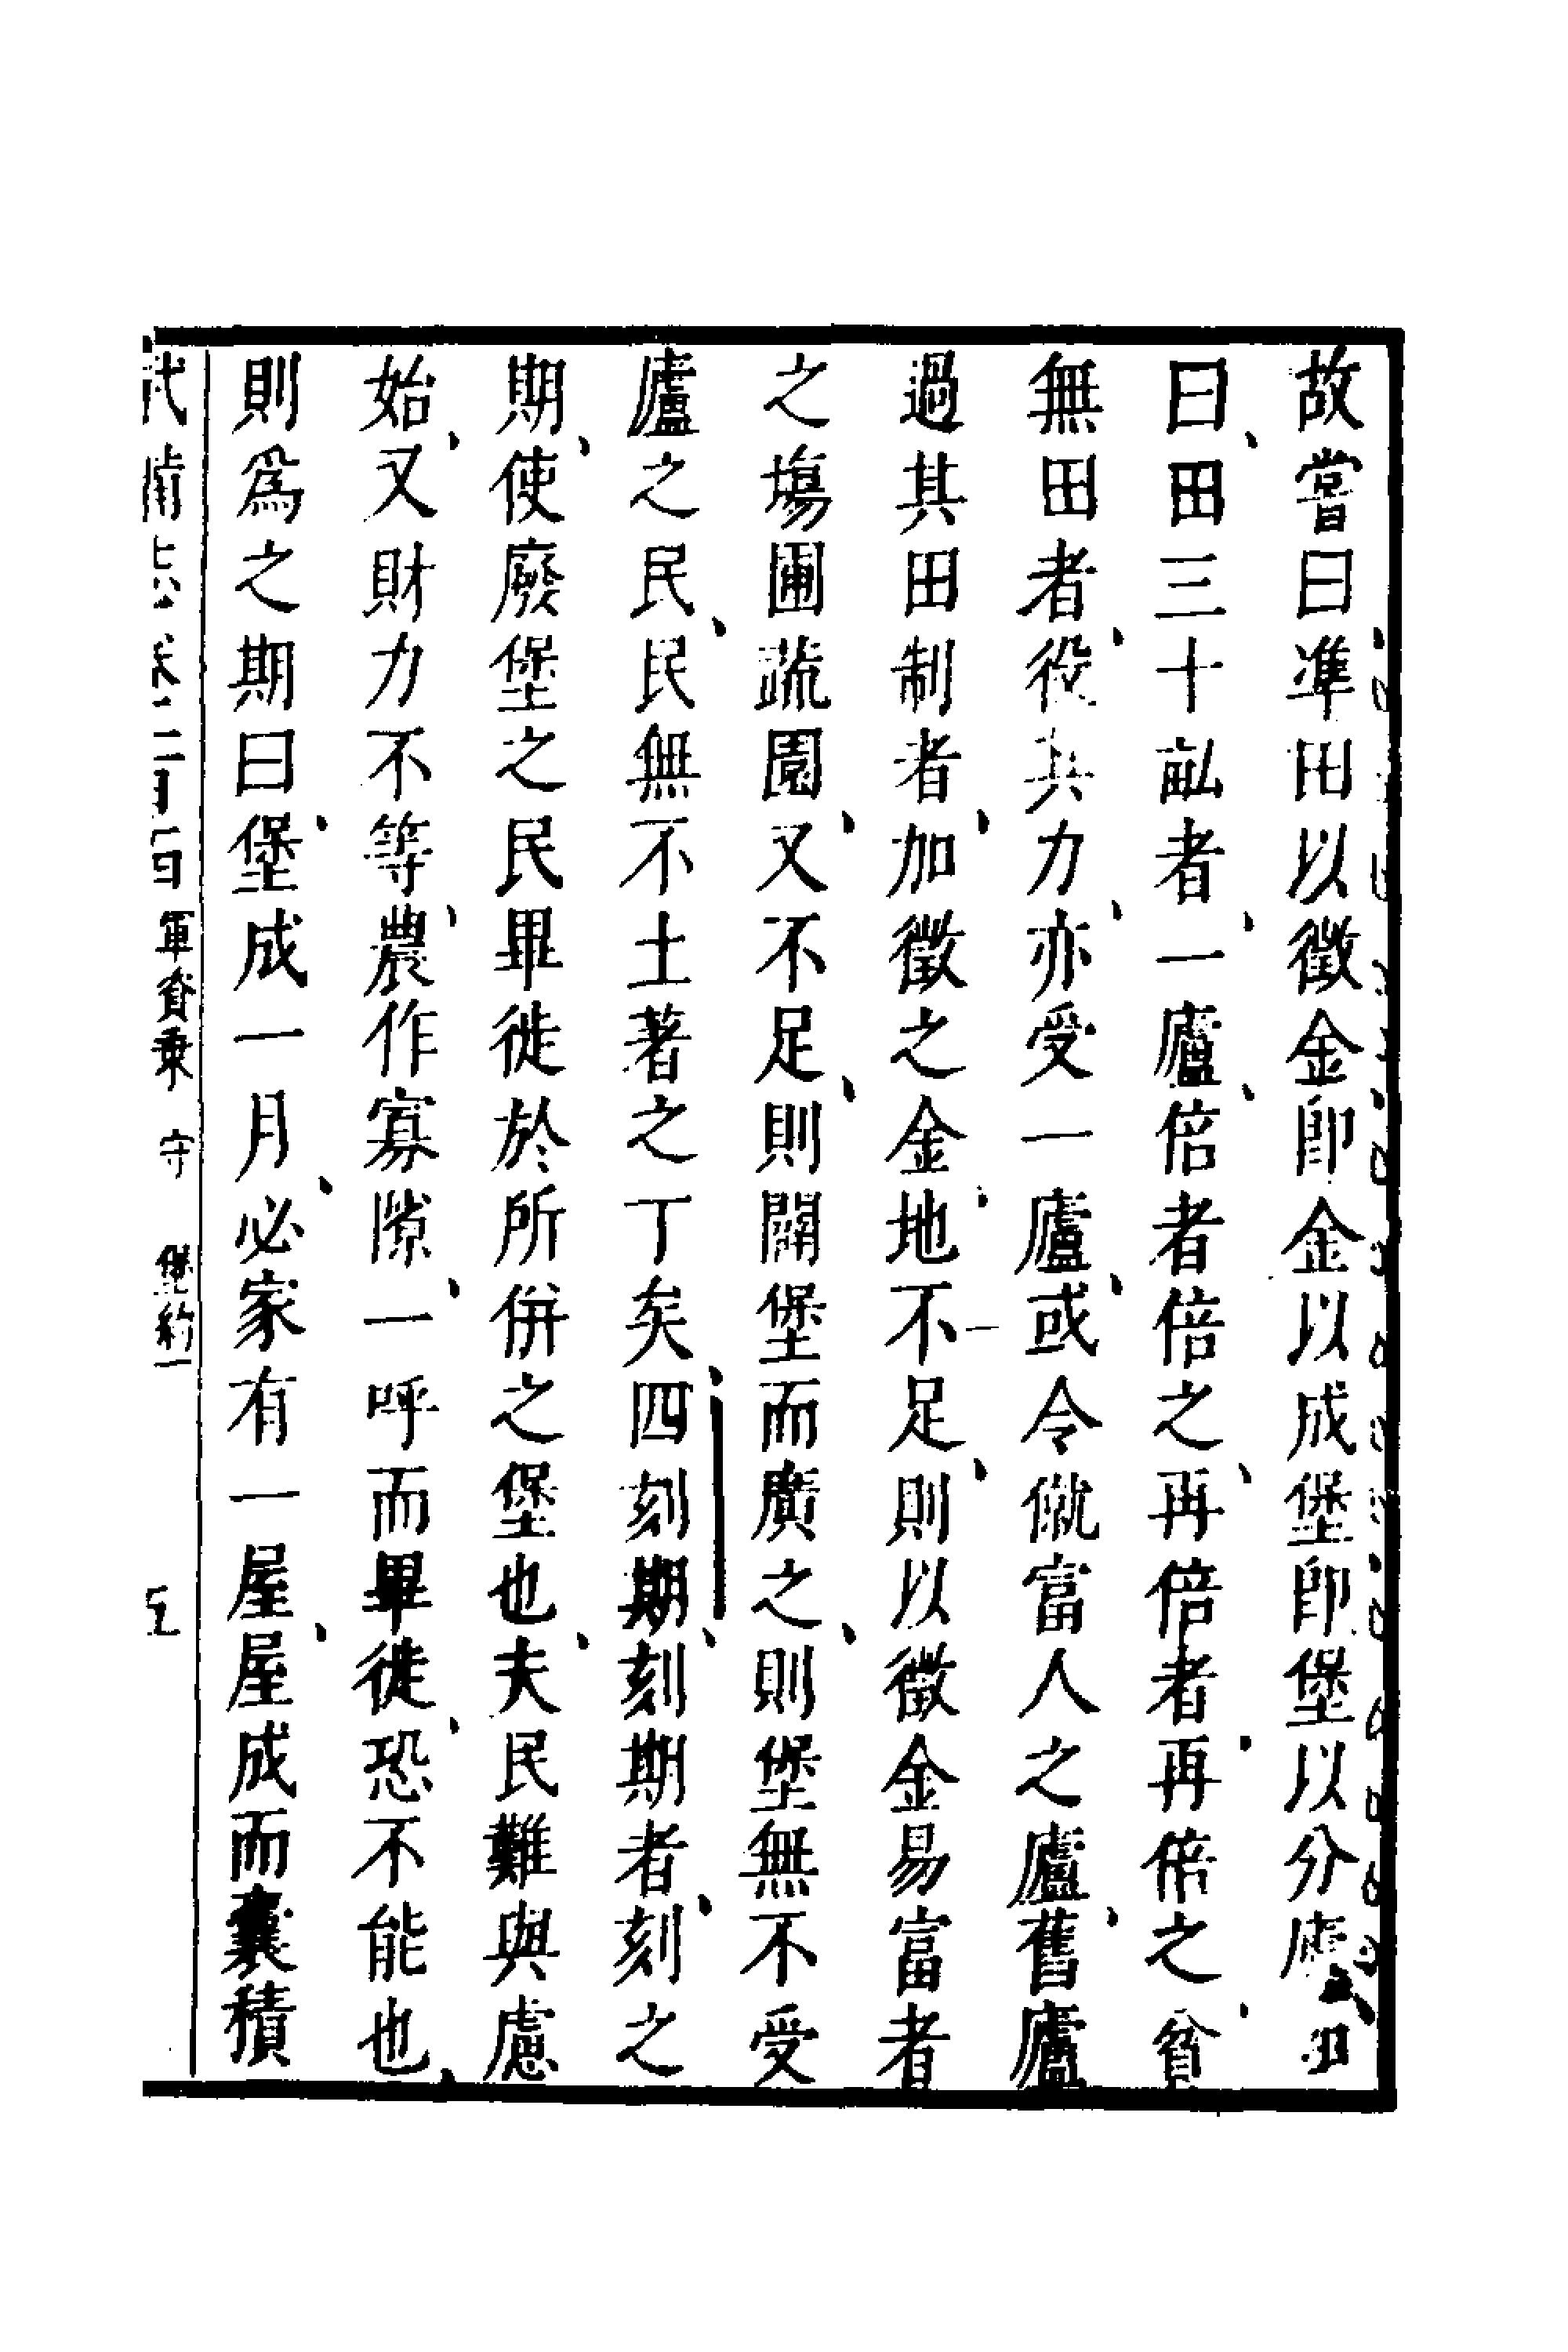 故嘗曰凖田以徵金卽金以成堡卽堡以分廬如
曰田三十畝者一廬倍者倍之再倍者再倍之貧
無田者役其力亦受一廬或令僦富人之廬舊廬
過其田制者加徵之金地不足則以徵金易富者
之塲圃蔬園又不足則闢堡而廣之則堡無不受
廬之民民無不土著之丁矣四刻期刻期者刻之
期使廢堡之民畢徙於所併之堡也夫民難與慮
始又財力不等農作寡隙一呼而畢徙恐不能也
則爲之期曰堡成一月必家有一屋屋成而囊積
武備志卷一百百 軍資乘 守 堡約一